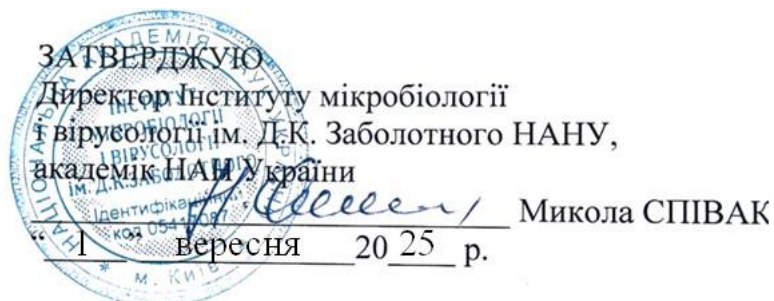 ЗАТВЕРДЖУЮ
Директор Інституту мікробіології
і вірусології ім. Д.К. Заболотного НАНУ,
академік НАН України
Микола СПІВАК
“ 1 ” вересня 20 25 р.
НАЦІОНАЛЬНА АКАДЕМІЯ НАУК
ІНСТИТУТ
МІКРОБІОЛОГІЇ
І ВІРУСОЛОГІЇ
ім. Д.К.ЗАБОЛОТНОГО
Ідентифікаційний
код
* м. Київ